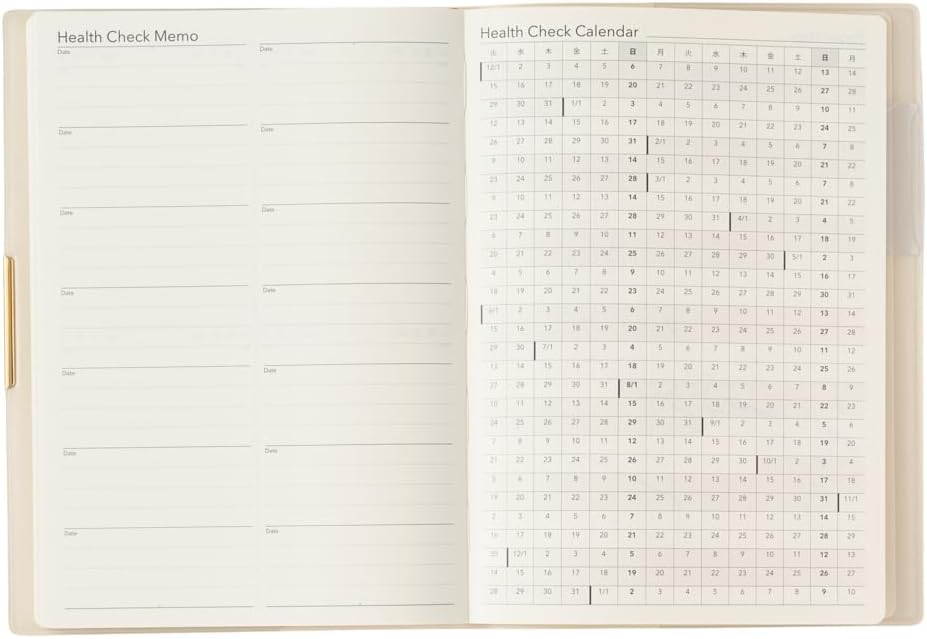 Health Check Memo
Date
Date
Date
Date
Date
Date
Date
Date
Date
Date
Date
Date
Date
Date
Health Check Calendar
火 水 木 金 土 日 月 火 水 木 金 土 日 月
12/1 2 3 4 5 6 7 8 9 10 11 12 13 14
15 16 17 18 19 20 21 22 23 24 25 26 27 28
29 30 31 1/1 2 3 4 5 6 7 8 9 10 11
12 13 14 15 16 17 18 19 20 21 22 23 24 25
26 27 28 29 30 31 2/1 2 3 4 5 6 7 8
9 10 11 12 13 14 15 16 17 18 19 20 21 22
23 24 25 26 27 28 3/1 2 3 4 5 6 7 8
9 10 11 12 13 14 15 16 17 18 19 20 21 22
23 24 25 26 27 28 29 30 31 4/1 2 3 4 5
6 7 8 9 10 11 12 13 14 15 16 17 18 19
20 21 22 23 24 25 26 27 28 29 30 5/1 2 3
4 5 6 7 8 9 10 11 12 13 14 15 16 17
18 19 20 21 22 23 24 25 26 27 28 29 30 31
6/1 2 3 4 5 6 7 8 9 10 11 12 13 14
15 16 17 18 19 20 21 22 23 24 25 26 27 28
29 30 7/1 2 3 4 5 6 7 8 9 10 11 12
13 14 15 16 17 18 19 20 21 22 23 24 25 26
27 28 29 30 31 8/1 2 3 4 5 6 7 8 9
10 11 12 13 14 15 16 17 18 19 20 21 22 23
24 25 26 27 28 29 30 31 9/1 2 3 4 5 6
7 8 9 10 11 12 13 14 15 16 17 18 19 20
21 22 23 24 25 26 27 28 29 30 10/1 2 3 4
5 6 7 8 9 10 11 12 13 14 15 16 17 18
19 20 21 22 23 24 25 26 27 28 29 30 31 11/1
2 3 4 5 6 7 8 9 10 11 12 13 14 15
16 17 18 19 20 21 22 23 24 25 26 27 28 29
30 12/1 2 3 4 5 6 7 8 9 10 11 12 13
14 15 16 17 18 19 20 21 22 23 24 25 26 27
28 29 30 31 1/1 2 3 4 5 6 7 8 9 10